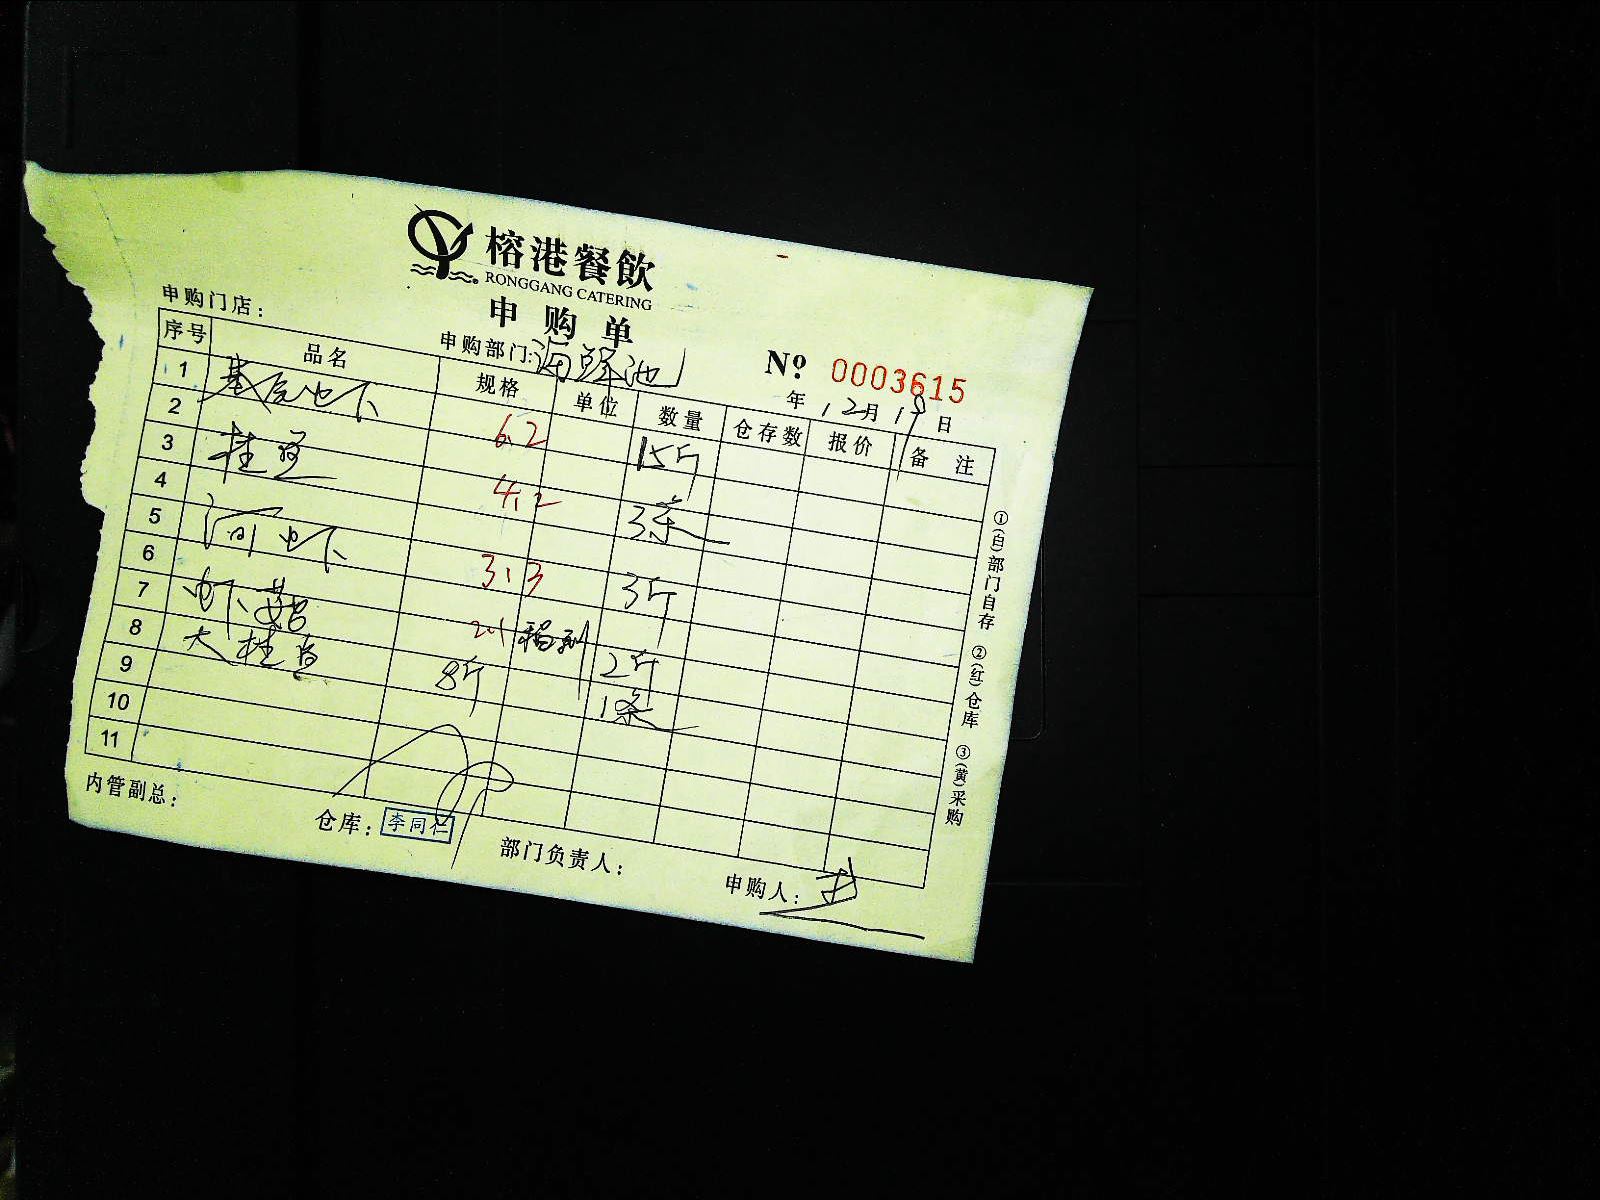 榕港餐飲
RONGGANG CATERING
申购单
申购门店：
申购部门:海鲜池
№ 0003615
年 12月 19日
序号 品名 规格 单位 数量 仓存数 报价 备注
1 基尾虾 6.2 15斤
2
3 桂鱼 4.2 3条
4
5 河虾 3.3 3斤
6
7 虾菇 2.1 2斤
8 大桂鱼 8斤 1条
9
10
11
①(白)部门自存 ②(红)仓库 ③(黄)采购
内管副总：
仓库：李同仁
部门负责人：
申购人：